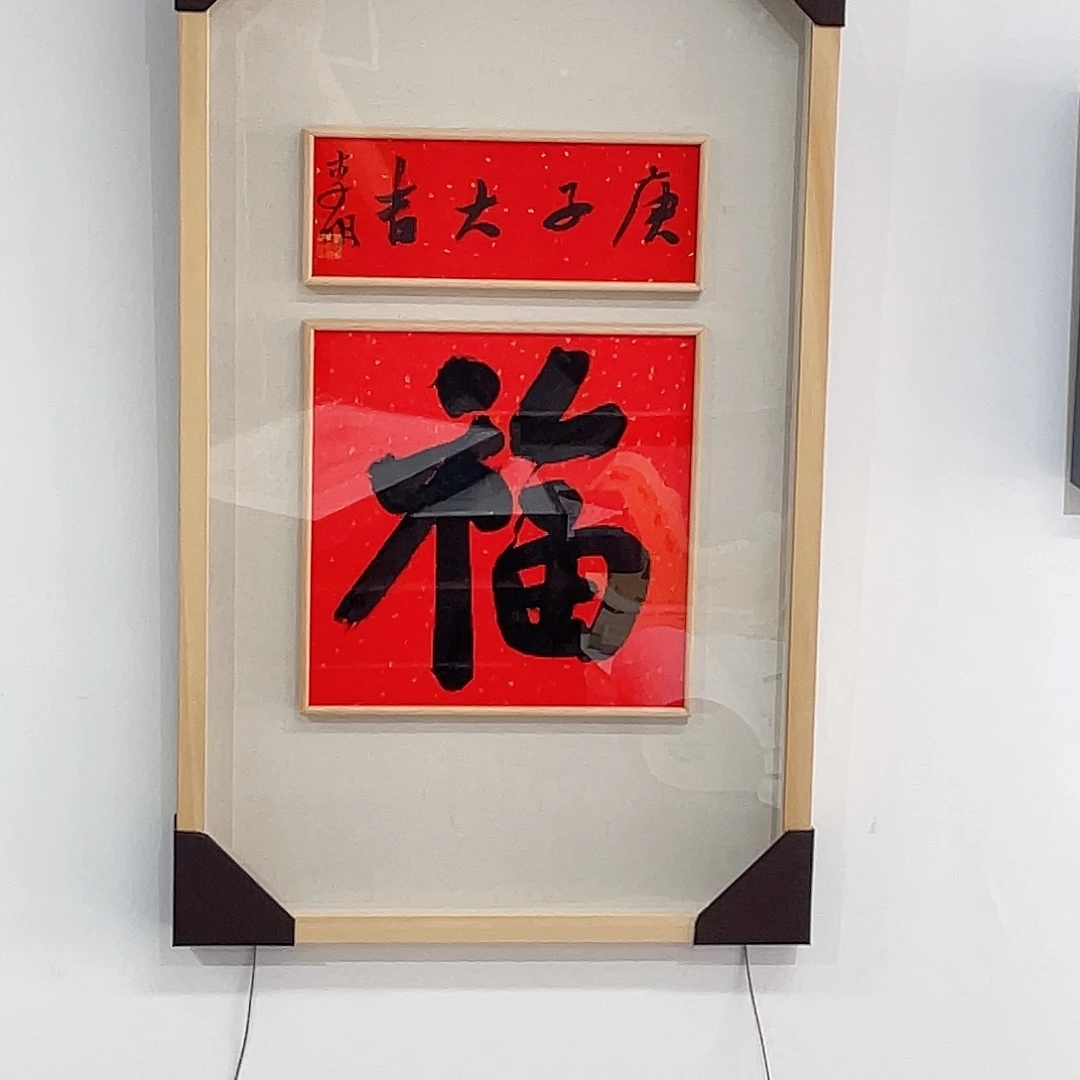 庚子大吉
福